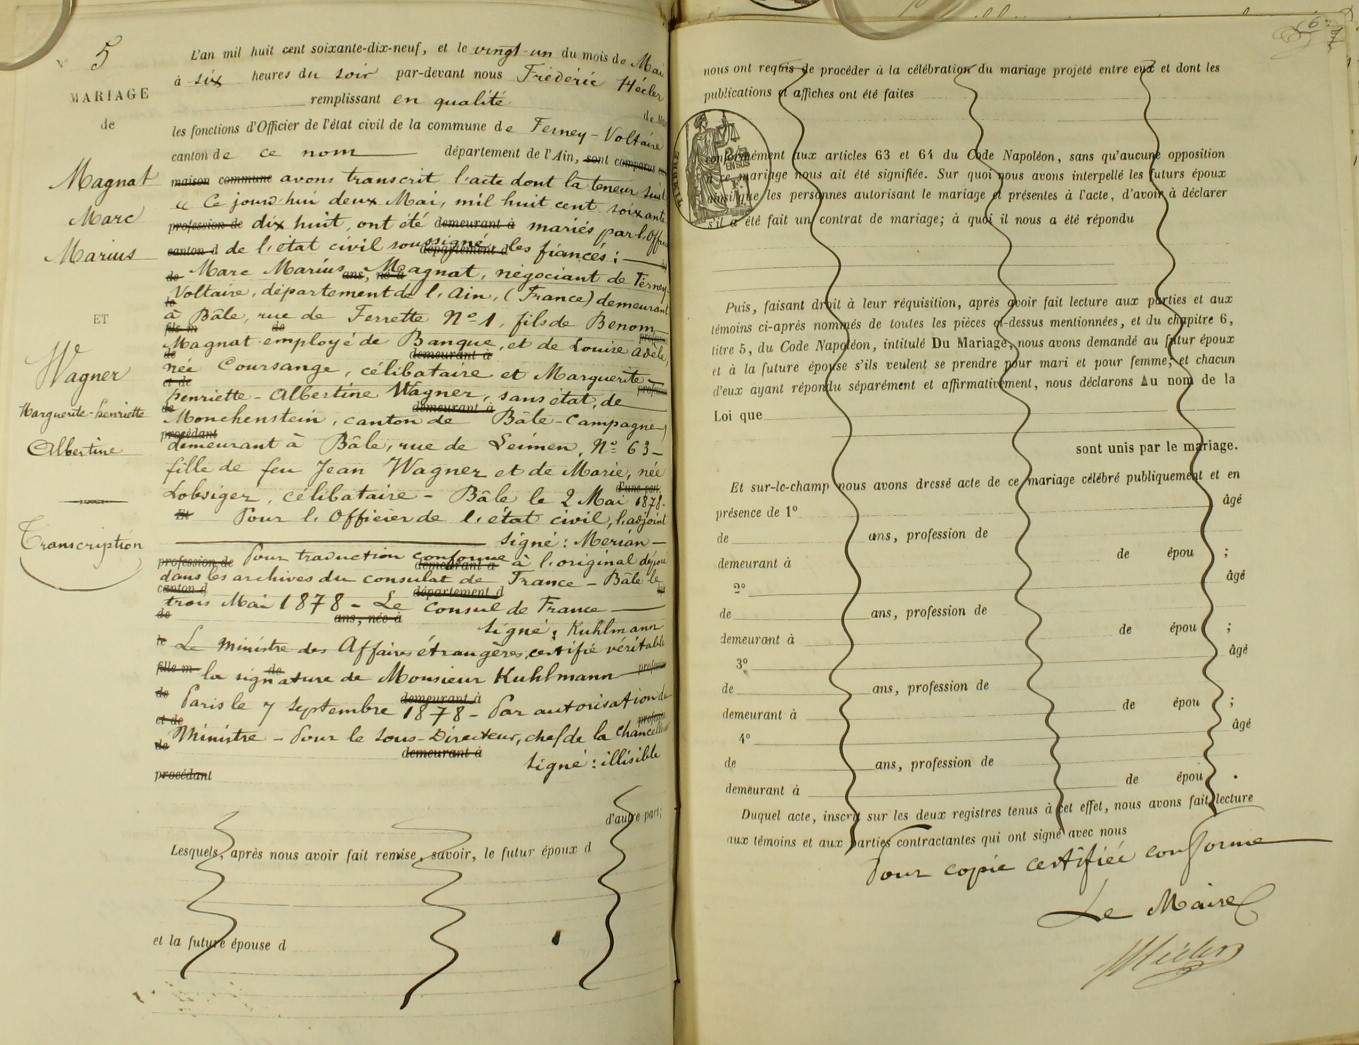 N° 5
MARIAGE
de
Magnat
Marc
Marius
ET
Wagner
Marguerite-henriette
Albertine
Transcription
L'an mil huit cent soixante-dix-neuf, et le vingt-un du mois de Mai
à six heures du soir par-devant nous Frédéric Hécler
remplissant en qualité
les fonctions d'Officier de l'état civil de la commune de Ferney-Voltaire
canton de ce nom département de l'Ain, sont comparus
maison commune avons transcrit l'acte dont la teneur suit
Ce jourd'hui deux Mai, mil huit cent soixante
profession de dix huit, ont été demeurant à mariés par l'Officier
canton d de l'état civil soussigné département d les fiancés :
de Marc Marius ans, né à Magnat, négociant de Ferney-
Voltaire, département de l'Ain, (France) demeurant
à Bâle, rue de Ferrette N° 1, fils de Benom
fils m de
Magnat employé de Banque, et de Louise Adèle,
de demeurant à
née Coursange, célibataire et Marguerite-
et de
henriette-Albertine Wagner, sans état, de
de demeurant à
Monchenstein, canton de Bâle-Campagne,
procédant
demeurant à Bâle, rue de Leimen, N° 63-
fille de feu Jean Wagner et de Marie, née
Lobsiger, célibataire - Bâle le 2 Mai 1878.
d'une part,
Et Pour l'Officier de l'état civil, l'adjoint
signé : Merian -
profession de Pour traduction conforme demeurant à à l'original déposé
dans les archives du consulat de France - Bâle le
canton d département d
trois Mai 1878 - Le Consul de France
de ans, née à
signé : Kuhlmann
le Le Ministre des Affaires étrangères, certifie véritable
fille m de
la signature de Monsieur Kuhlmann
de demeurant à
Paris le 7 septembre 1878 - Par autorisation du
et de
Ministre - Pour le Sous-Directeur, chef de la Chancellerie
de demeurant à
signé : illisible
procédant
d'autre part;
Lesquels, après nous avoir fait remise, savoir, le futur époux d
et la future épouse d
nous ont requis de procéder à la célébration du mariage projeté entre eux et dont les
publications et affiches ont été faites
TIMBRE
conformément aux articles 63 et 64 du Code Napoléon, sans qu'aucune opposition
à ce mariage nous ait été signifiée. Sur quoi nous avons interpellé les futurs époux
ainsi que les personnes autorisant le mariage et présentes à l'acte, d'avoir à déclarer
s'il a été fait un contrat de mariage; à quoi il nous a été répondu
Puis, faisant droit à leur réquisition, après avoir fait lecture aux parties et aux
témoins ci-après nommés de toutes les pièces ci-dessus mentionnées, et du chapitre 6,
titre 5, du Code Napoléon, intitulé Du Mariage, nous avons demandé au futur époux
et à la future épouse s'ils veulent se prendre pour mari et pour femme, et chacun
d'eux ayant répondu séparément et affirmativement, nous déclarons Au nom de la
Loi que
sont unis par le mariage.
Et sur-le-champ nous avons dressé acte de ce mariage célébré publiquement et en
présence de 1° âgé
de ans, profession de
demeurant à de épou ;
2° âgé
de ans, profession de
demeurant à de épou ;
3° âgé
de ans, profession de
demeurant à de épou ;
4° âgé
de ans, profession de
demeurant à de épou .
Duquel acte, inscrit sur les deux registres tenus à cet effet, nous avons fait lecture
aux témoins et aux parties contractantes qui ont signé avec nous
Pour copie certifiée conforme
Le Maire
Hécler